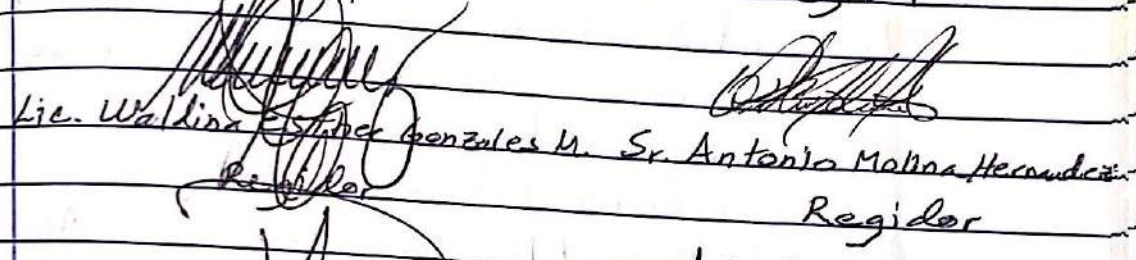 Lic. Waldina Esther Gonzales M. Sr. Antonio Molina Hernandez
Regidor Regidor